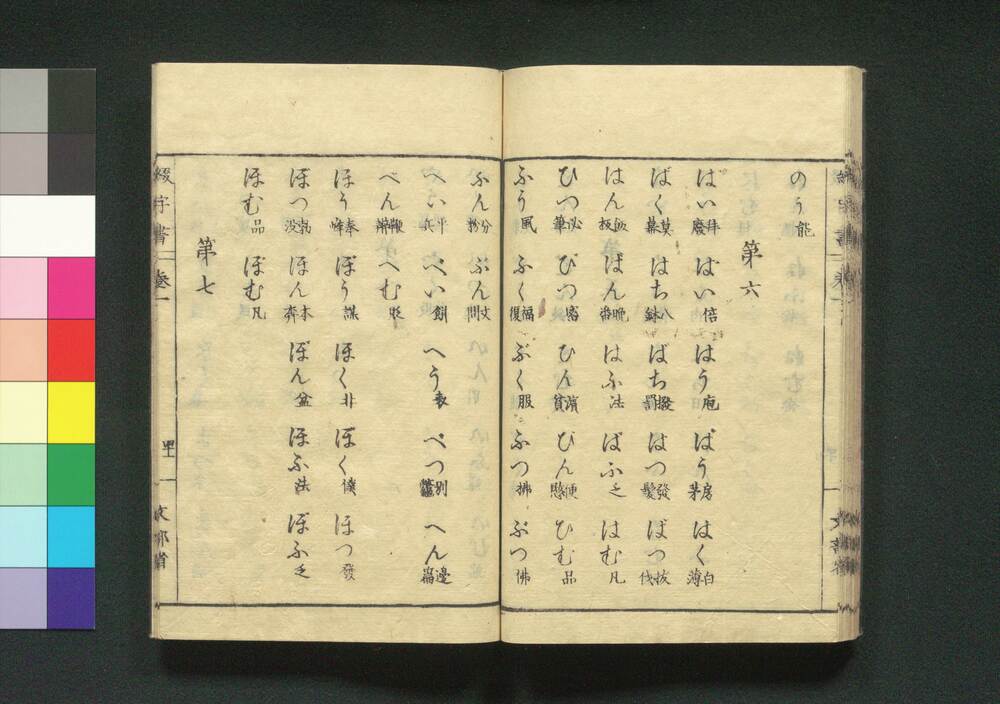 のう 能
第六
はい 拜廢 ばい 倍 はう 庖 ばう 房茅 はく 白薄
ばく 莫幕 はち 八鉢 ばち 撥罰 はつ 發髮 ばつ 拔伐
はん 飯板 ばん 晩番 はふ 法 ばふ 乏 はむ 凡
ひつ 必筆 びつ 密 ひん 濱貧 びん 便愍 ひむ 品
ふう 風 ふく 福復 ぶく 服 ふつ 拂 ぶつ 佛
ふん 分粉 ぶん 文問
へい 平兵 べい 餅 へう 表 べつ 別 へん 邊篇
べん 鞭辨 へむ 貶
ほう 奉峰 ぼう 謀 ほく 北 ぼく 僕 ほつ 發
ぼつ 没 ほん 本奔 ぼん 盆 ほふ 法 ぼふ 乏
ほむ 品 ぼむ 凡
第七
綴字書 卷一 文部省